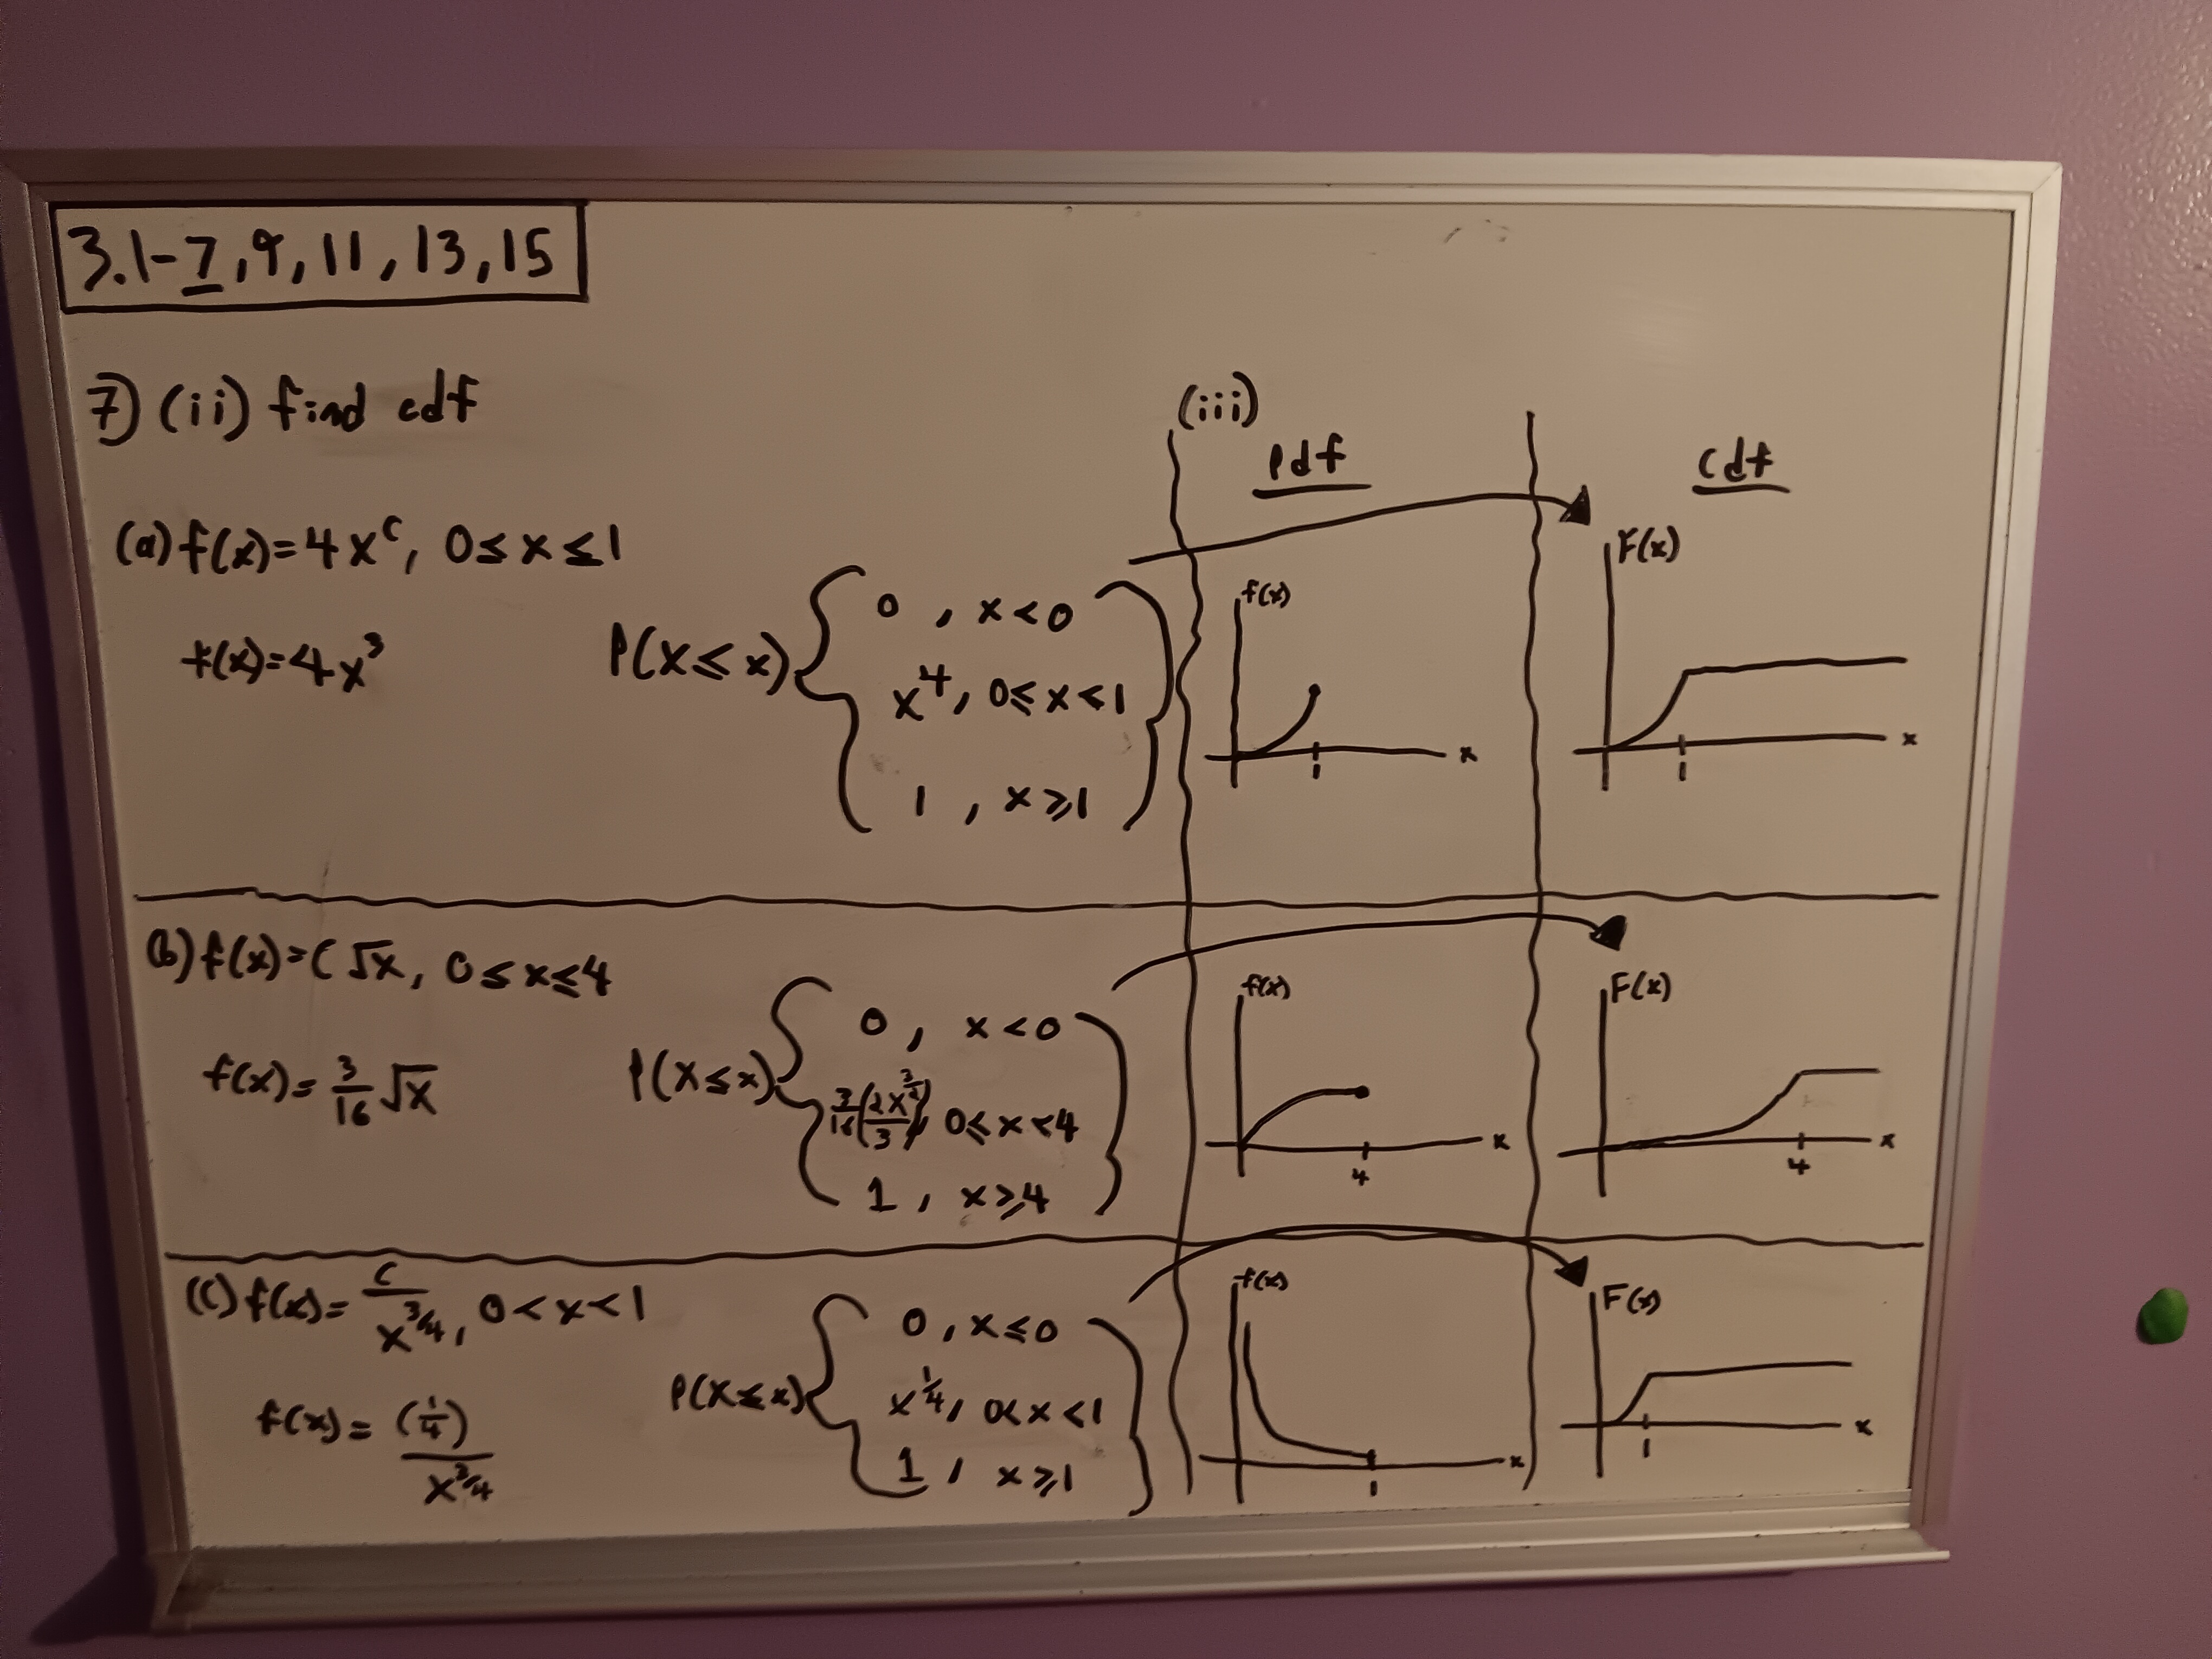 3.1-7,9,11,13,15
7) (ii) find cdf
(a) f(x)=4x^c, 0≤x≤1
f(x)=4x^3
P(X≤x) { 0, x<0
x^4, 0≤x<1
1, x≥1 }
(b) f(x)=C√x, 0≤x≤4
f(x)=3/16 √x
P(X≤x) { 0, x<0
3/16(2x^(3/2)/3), 0≤x<4
1, x≥4 }
(c) f(x)=c/x^(3/4), 0<x<1
f(x)=(1/4)/x^(3/4)
P(X≤x) { 0, x≤0
x^(1/4), 0<x<1
1, x≥1 }
(iii)
Pdf
f(x)
x
1
f(x)
x
4
f(x)
x
1
Cdf
F(x)
x
1
F(x)
x
4
F(x)
x
1